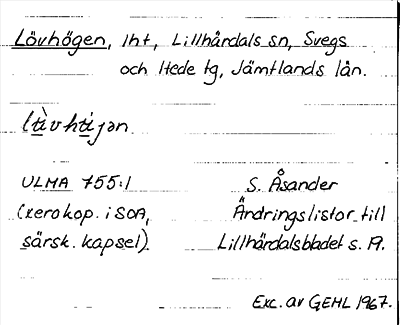 Lövhögen, lht, Lillhärdals sn, Svegs
och Hede tg, Jämtlands län.
ULMA 755:1 S. Åsander
(xerokop. i SOA, Ändringslistor till
särsk. kapsel). Lillhärdalsbladet s. 19.
Exc. av GEHL 1967.